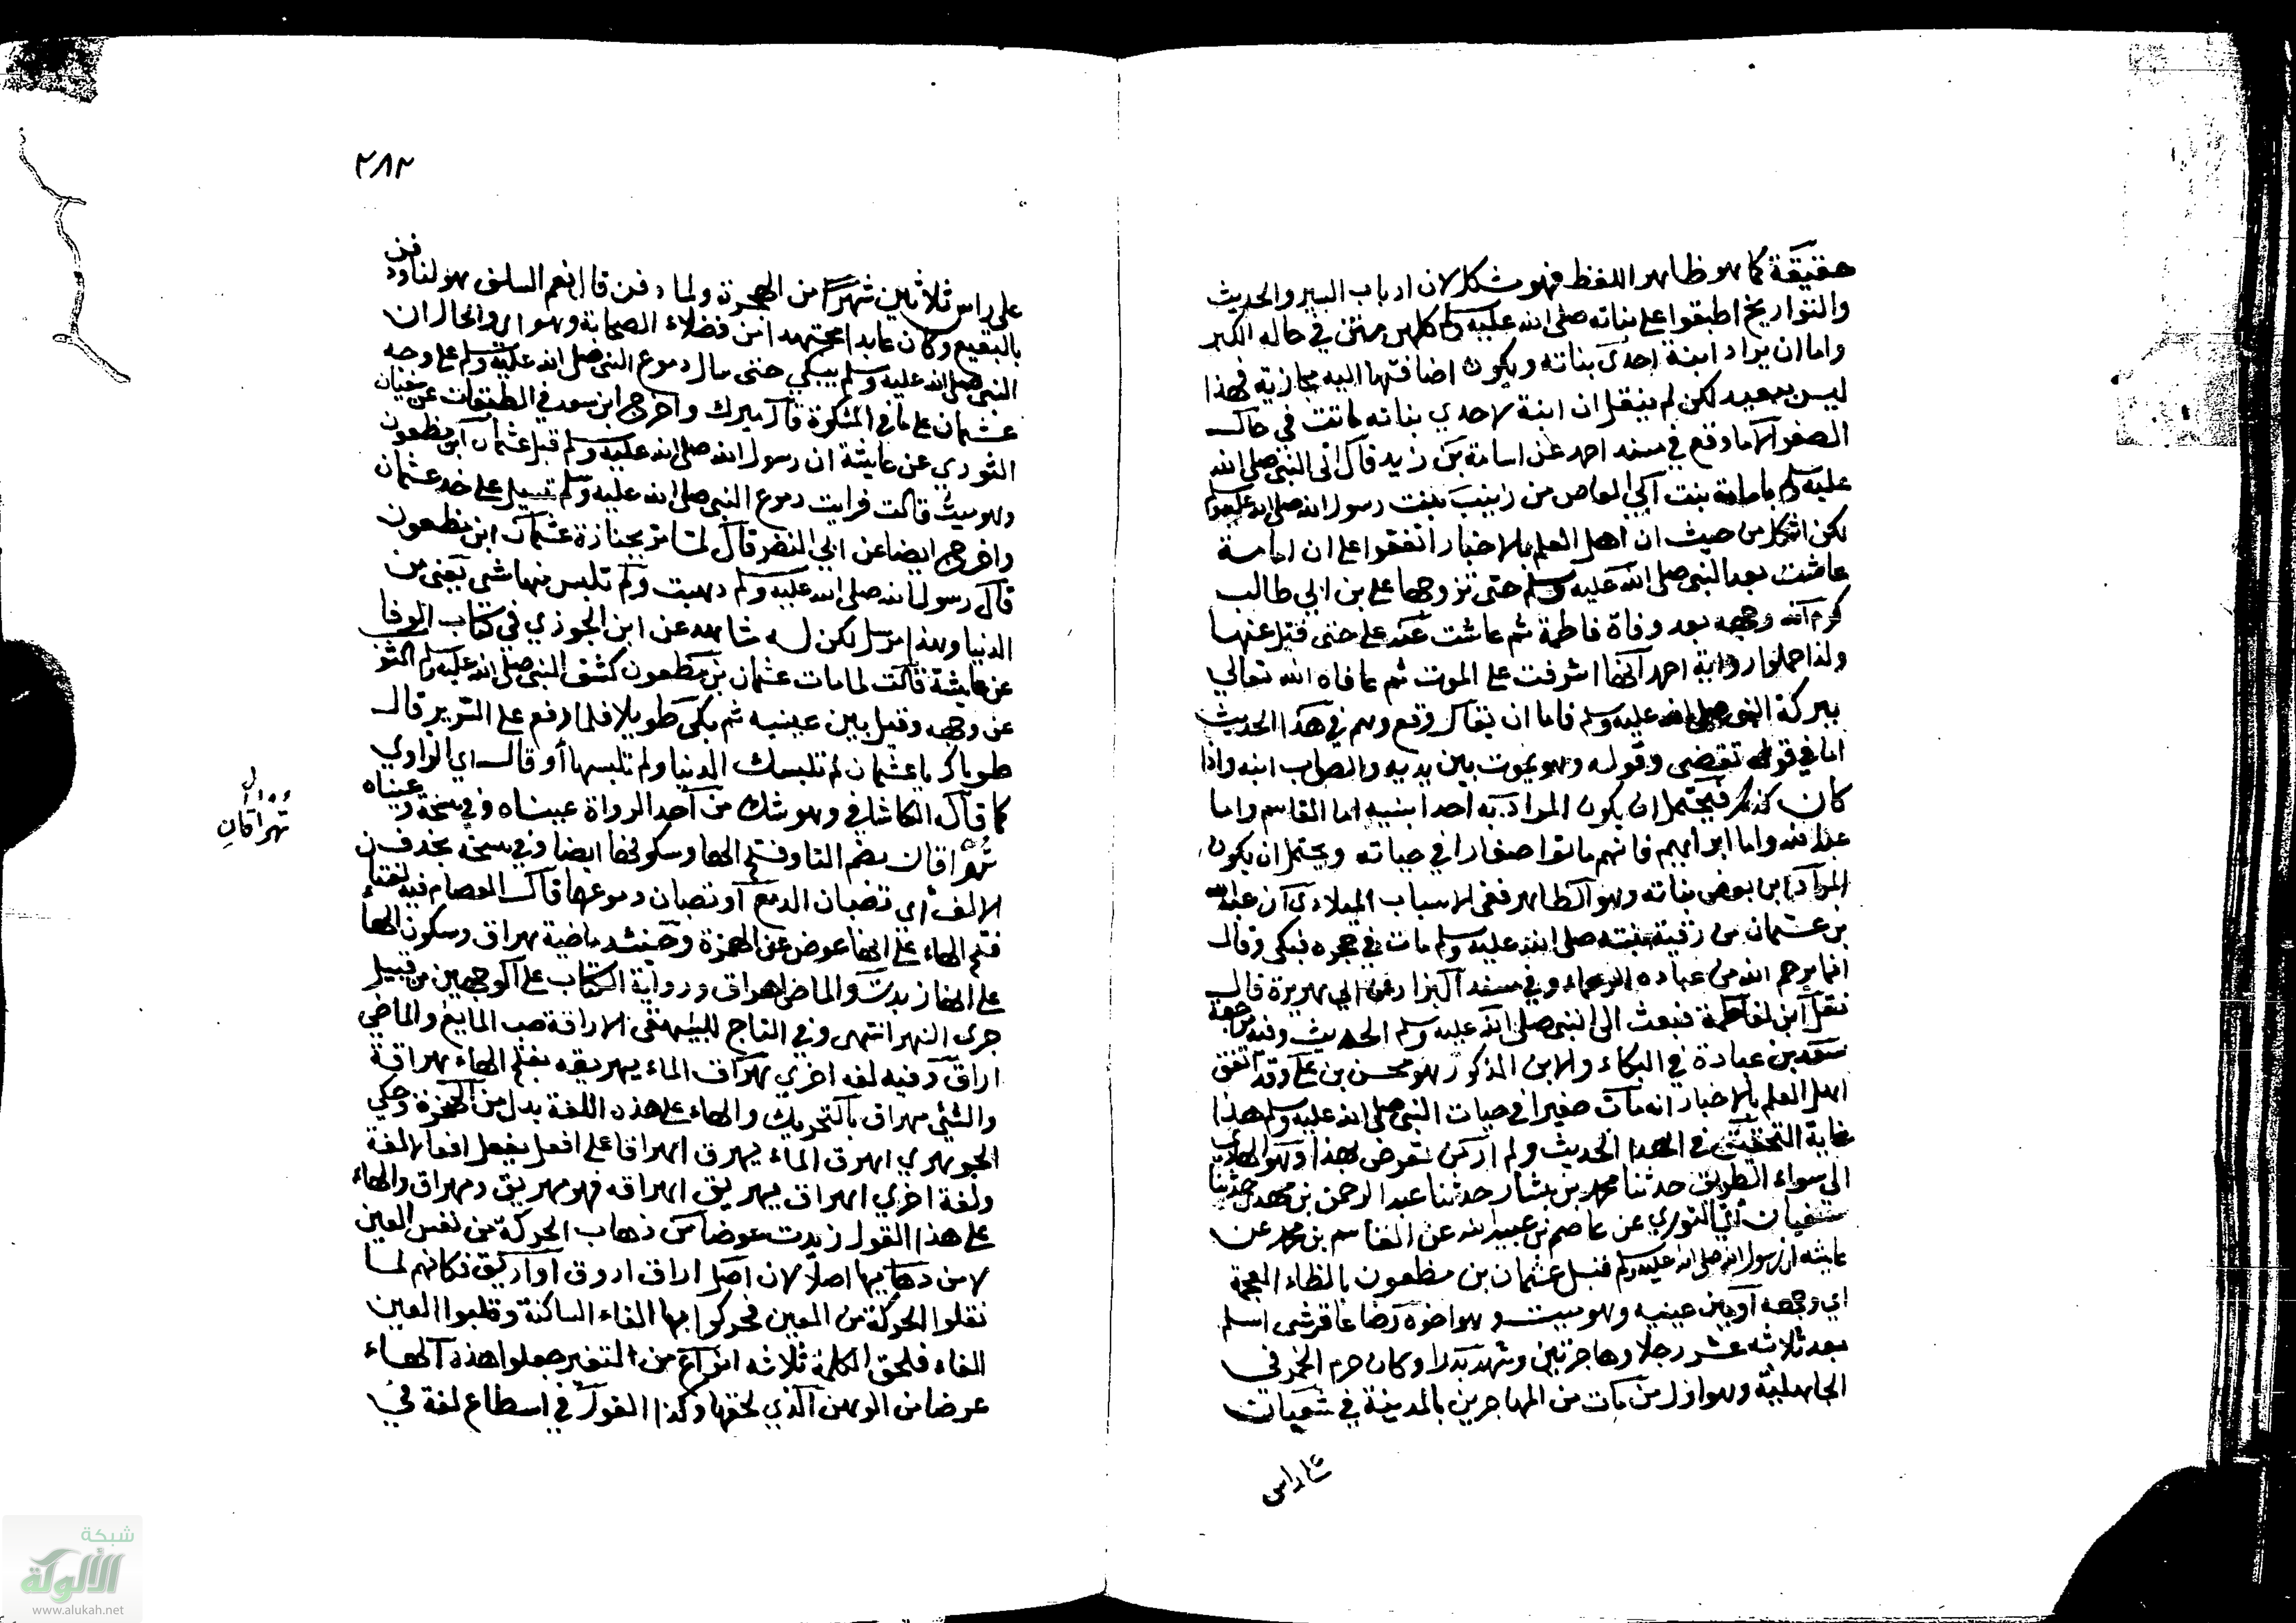 حقيقة كما هو ظاهر اللفظ فهو مشكل لان ارباب السير والحديث
والتواريخ اطبقوا على بناته صلى الله عليه وسلم كلهن متن في حاله الكبر
واما ان يراد ابنة احدى بناته ويكون اضافتها اليه مجازية فهذا
ليس ببعيد لكن لم ينقل ان ابنة لاحدي بناته ماتت في حال
الصغر الا ما وقع في مسند احمد عن اسامة بن زيد قال اتى النبي صلى الله
عليه وسلم بامامة بنت ابي العاص من زينب بنت رسول الله صلى الله عليه وسلم
لكن اشكل من حيث ان اهل العلم بالاخبار اتفقوا على ان امامة
عاشت بعد النبي صلى الله عليه وسلم حتى تزوجها علي بن ابي طالب
كرم الله وجهه بعد وفاة فاطمة ثم عاشت عند علي حتى قتل عنها
ولذا حملوا رواية احمد انها اشرفت على الموت ثم عافاه الله تعالي
ببركة النبي صلى الله عليه وسلم فاما ان يقال وقع وهم في هذا الحديث
اما في قوله تقضي وقوله وهو يموت بين يديه والصواب ابنه واذا
كان كذلك فيحتمل ان يكون المراد به احد ابنيه اما القاسم واما
عبد الله واما ابراهيم فانهم ماتوا صغارا في حياته ويحتمل ان يكون
المراد ابن بعض بناته وهو الظاهر ففي الانساب للبلاذري ان عبد الله
بن عثمان من رقية بنته صلى الله عليه وسلم مات في حجره فبكى وقال
انما يرحم الله من عباده الرحماء وفي مسند البزار عن ابي هريرة قال
ثقل ابن لفاطمة فبعث الى النبي صلى الله عليه وسلم الحديث وفيه مراجعة
سعد بن عبادة في البكاء والابن المذكور هو محسن بن علي وقد اتفق
اهل العلم بالاخبار انه مات صغيرا في حيات النبي صلى الله عليه وسلم هذا
غاية التحقيق في هذا الحديث ولم ار من تعرض لهذا وهو الهادي
الى سواء الطريق حدثنا محمد بن بشار حدثنا عبد الرحمن بن مهدي حدثنا
سفيان اي الثوري عن عاصم بن عبيد الله عن القاسم بن محمد عن
عايشه ان رسول الله صلى الله عليه وسلم قبل عثمان بن مظعون بالظاء المعجمة
اي وجهه او بين عينيه وهو ميت وهو اخوه رضاعا قرشي اسلم
بعد ثلاثه عشر رجلا وهاجر هجرتين وشهد بدرا وكان حرم الخمر في
الجاهلية وهو اول من مات من المهاجرين بالمدينة في شعبان
على راس
٢٨٢
على راس ثلاثين شهرا من الهجرة ولما دفن قال نعم السلف هو لنا ودفن
بالبقيع وكان عابدا مجتهدا من فضلاء الصحابة وهو اي والحال ان
النبي صلى الله عليه وسلم يبكي حتى سال دموع النبي صلى الله عليه وسلم على وجه
عثمان على ما في المشكوة قال ميرك واخرج ابن سعد في الطبقات عن سفيان
الثوري عن عايشة ان رسول الله صلى الله عليه وسلم قبل عثمان ابن مظعون
وهو ميت قالت فرايت دموع النبي صلى الله عليه وسلم تسيل على خد عثمان
واخرج ايضا عن ابي النضر قال لما مر بجنازة عثمان ابن مظعون
قال رسول الله صلى الله عليه وسلم ذهبت ولم تلبس منها شي يعني من
الدنيا وهذا مرسل لكن له شاهد عن ابن الجوزي في كتاب الوفا
عن عايشة قالت لما مات عثمان بن مظعون كشف النبي صلى الله عليه وسلم الثوب
عن وجهه وقبل بين عينيه ثم بكى طويلا فلما رفع على السرير قال
طوباك يا عثمان لم تلبسك الدنيا ولم تلبسها أو قال اي الراوي
كما قال الكاشافي وهو شك من احد الرواة عيناه وفي نسخة وعيناه
تُهَراقان بضم التا وفتح الها وسكونها ايضا وفي نسخة بحذف ن
الالف أي تصبان الدمع او تصبان دموعها قال العصام فيه لغتان
فتح الهاء على انها عوض عن الهمزة وحينئذ ماضيه هراق وسكون الها
على انها زيدت والماضي اهراق ورواية الكتاب على الوجهين من قبيل
جرى النهر انتهى وفي التاج للبيهقي الاراقة صب المايع والماضي
اراق وفيه لغه اخري هراق الماء يهريقه بفتح الهاء هراقة
والشئ مهراق بالتحريك والهاء على هذه اللغة بدل من الهمزة وحكي
الجوهري اهرق الماء يهرق اهراقا على افعل يفعل افعالا لغة
ولغة اخري اهراق يهريق اهراقه فهو مهريق ومهراق والهاء
على هذا القول زيدت عوضا من ذهاب الحركة من نفس العين
لا من ذهابها اصلا لان اصل اراق اروق او اريق فكانهم لما
نقلوا الحركة من العين فحركوا بها الفاء الساكنة وقلبوا العين
الفا فلحق الكلمة ثلاثه انواع من التغير جعلوا هذه الهاء
عوضا من الوهن الذي لحقها وكذا القول في اسطاع لغة في
تهراقان
شبكة
الألوكة
www.alukah.net